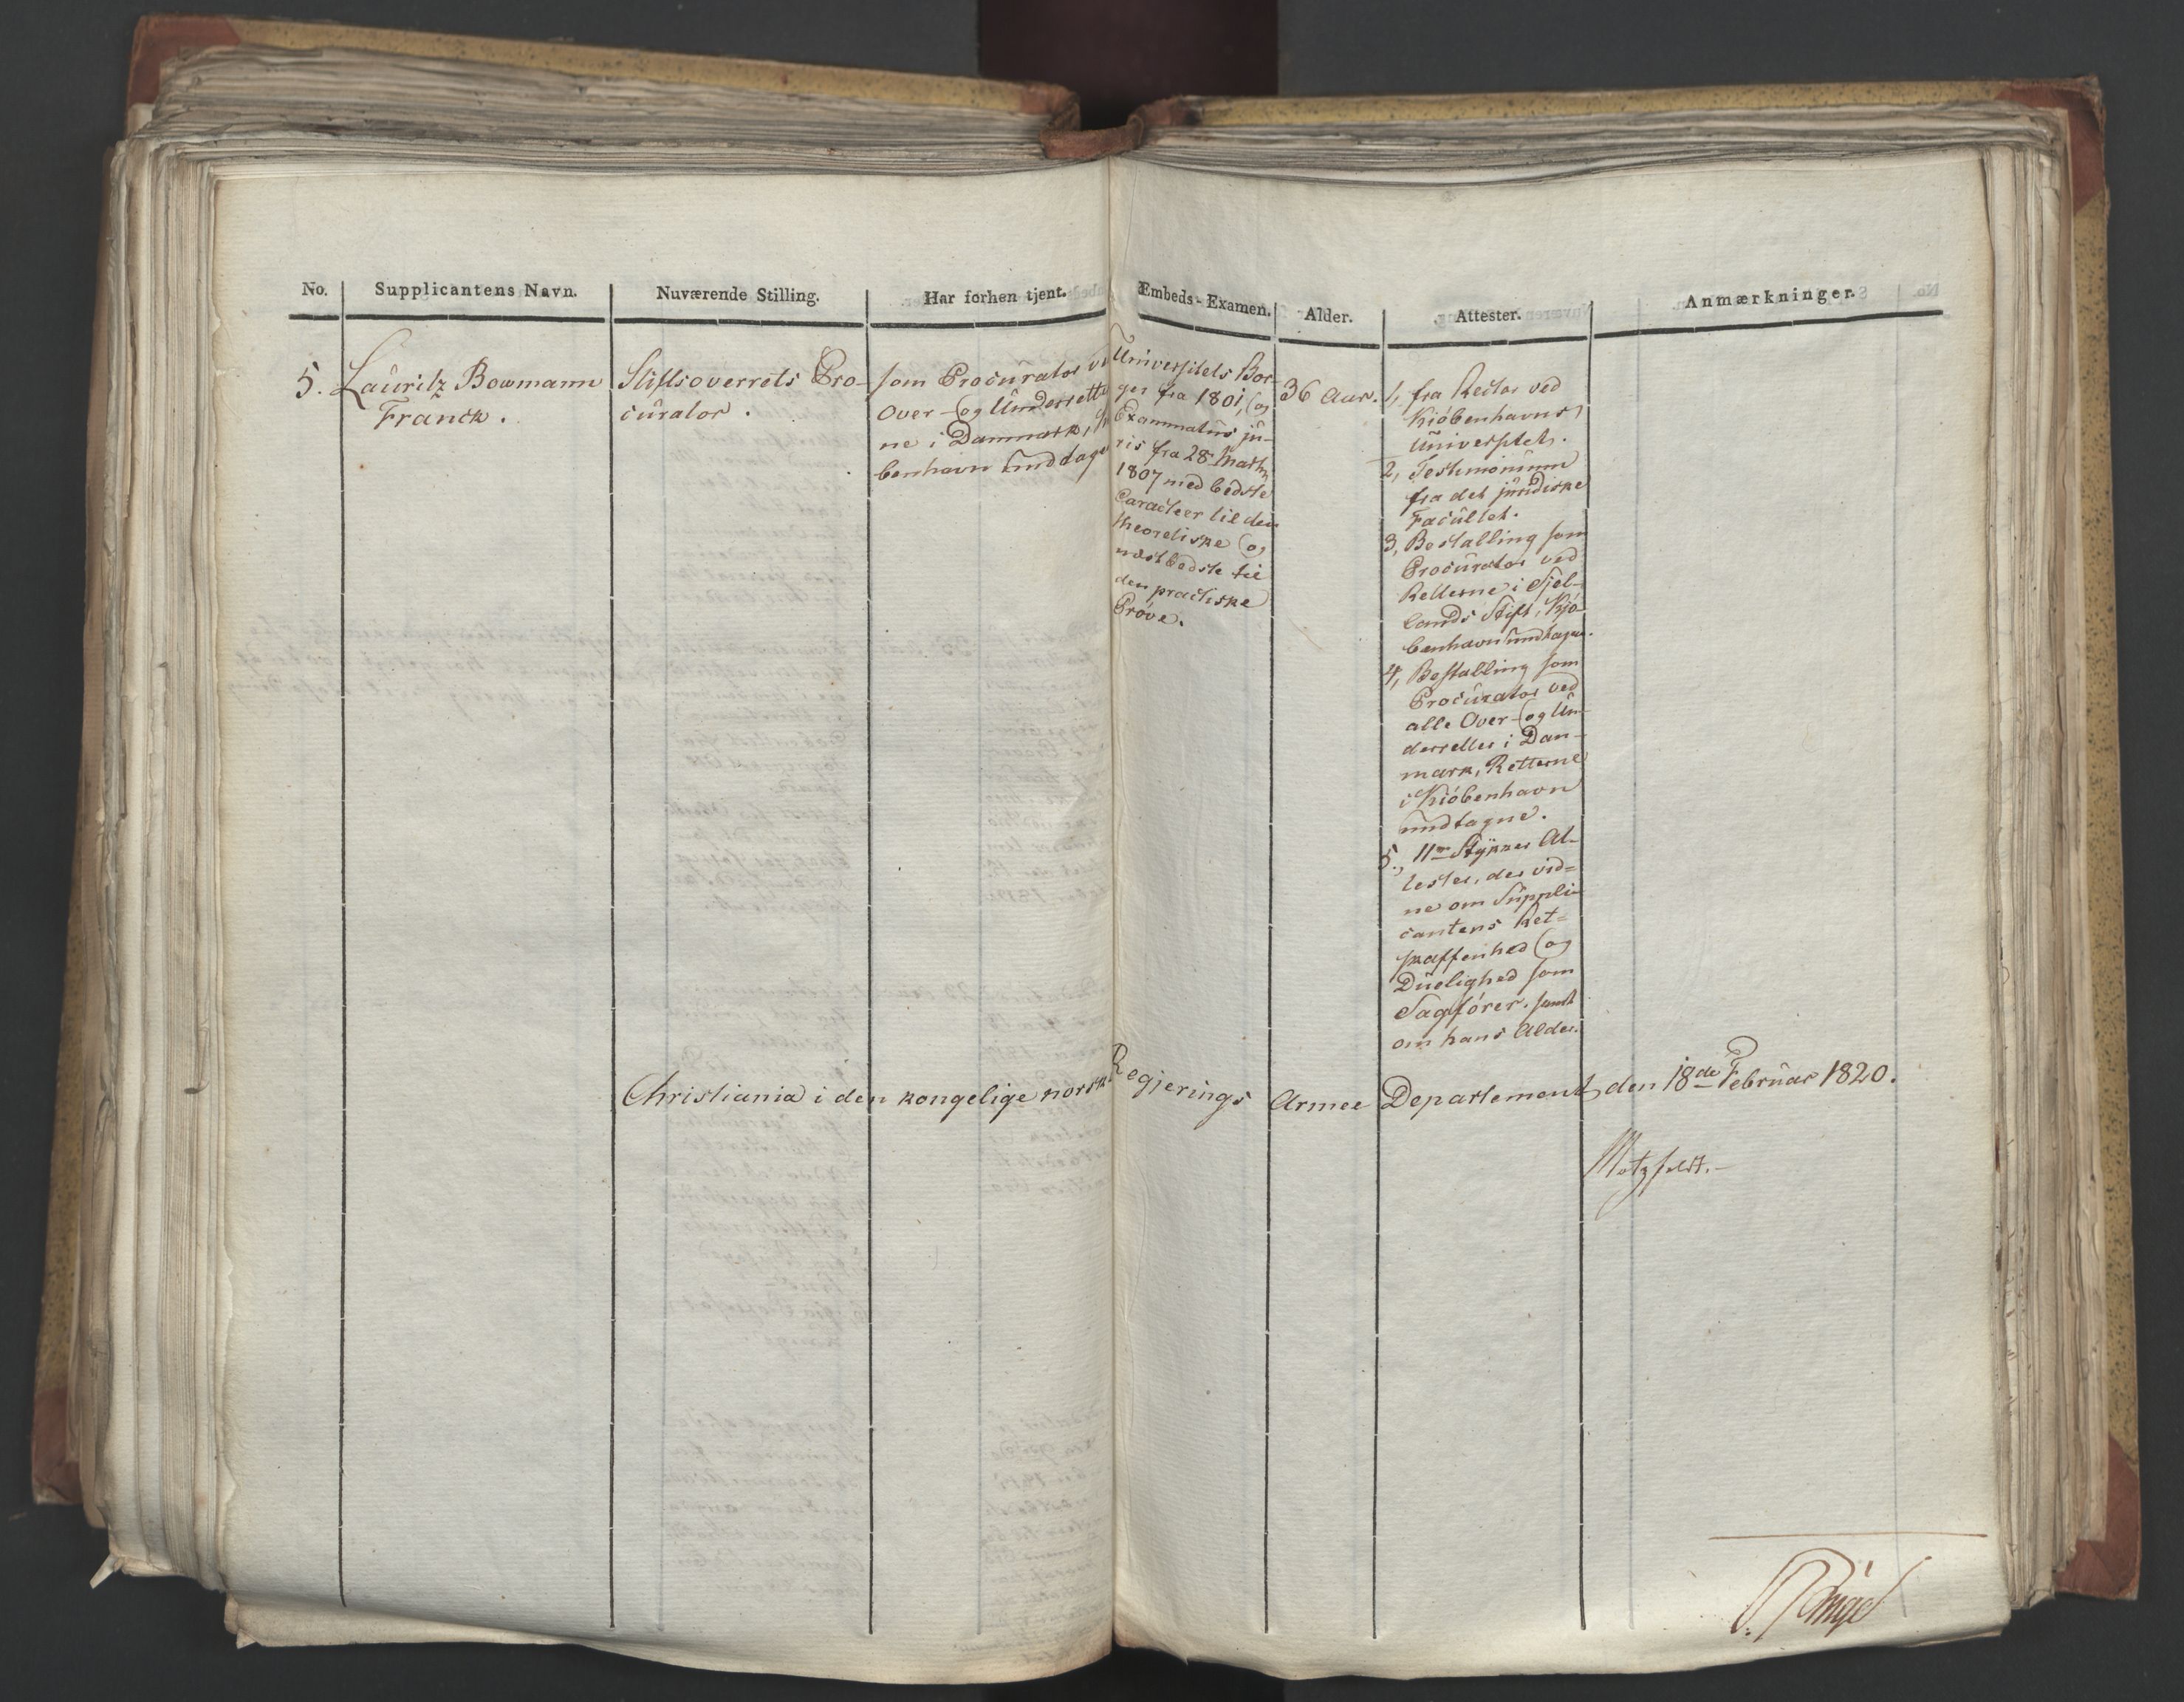 No.
Supplicantens Navn.
Nuværende Stilling.
Har forhen tjent.
Embeds-Examen.
Alder.
Attester.
Anmærkninger.
5.
Lauritz Bowmann
Franck.
Stiftsoverrets Pro-
curator.
som Procurator ve
Over- og Underrette
ne i Danmark,
benhavn undtage
Universitets Bor-
ger fra 1801, og
Examinatus ju-
ris fra 28 Martii
1807 med bedste
Caracteer til den
theoretiske og
næstbedste til
den practiske
Prøve.
36 Aar.
1, fra Rector ved
Kiøbenhavns
Universitet.
2, Testimonium
fra det juridiske
Facultet.
3, Bestalling som
Procurator ved
Retterne i Sjel-
lands Stift, Kjø-
benhavn undtagen.
4, Bestalling som
Procurator ved
alle Over- og Un-
derretter i Dan-
mark, Retterne
i Kiøbenhavn
undtagne.
5., 11 Stykker At-
tester, der vid-
ne om Suppli-
cantens Ret-
skaffenhed og
Duelighed som
Sagfører, samt
om hans Alder.
Christiania i den kongelige norske Regjerings Armee Departement, den 18de Februar 1820.
Motzfeldt.